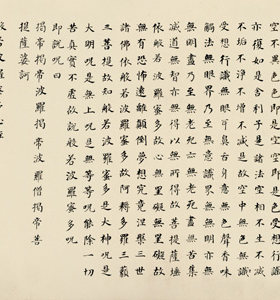 空不異色色即是空空即是色受想行識
亦復如是舍利子是諸法空相不生不滅
不垢不淨不增不減是故空中無色無
受想行識無眼耳鼻舌身意無色聲香味
觸法無眼界乃至無意識界無無明亦
無無明盡乃至無老死亦無老死盡無苦集
滅道無智亦無得以無所得故菩提薩埵
依般若波羅蜜多故心無罣礙無罣礙故
無有恐怖遠離顛倒夢想究竟涅槃三世
諸佛依般若波羅蜜多故得阿耨多羅三藐
三菩提故知般若波羅蜜多是大神咒是
大明咒是無上咒是無等等咒能除一切
苦真實不虛故說般若波羅蜜多咒
即說咒曰
揭帝揭帝波羅揭帝波羅僧揭帝菩
提薩婆訶
般若波羅蜜多心經